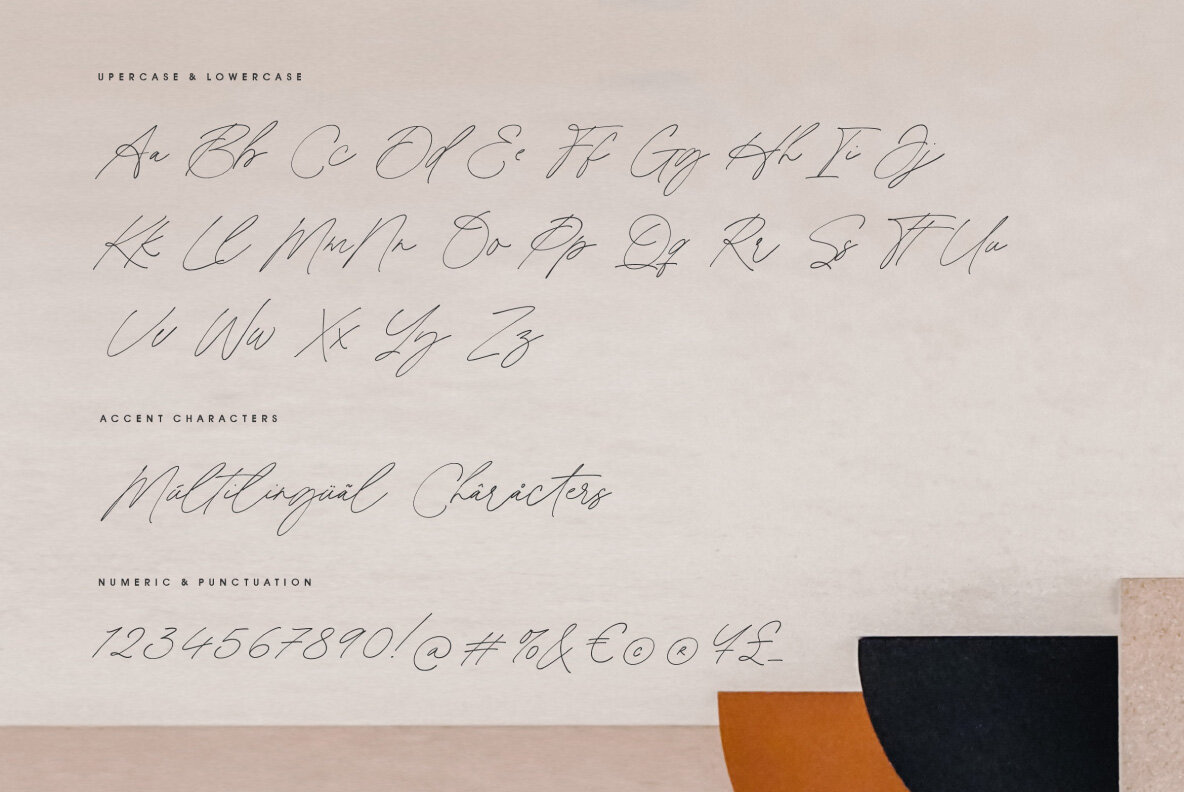 UPERCASE & LOWERCASE
Aa Bb Cc Dd Ee Ff Gg Hh Ii Jj
Kk Ll Mm Nn Oo Pp Qq Rr Ss Tt Uu
Vv Ww Xx Yy Zz
ACCENT CHARACTERS
Múltilingüãl Chârácters
NUMERIC & PUNCTUATION
1234567890!@#%&€©®¥£_